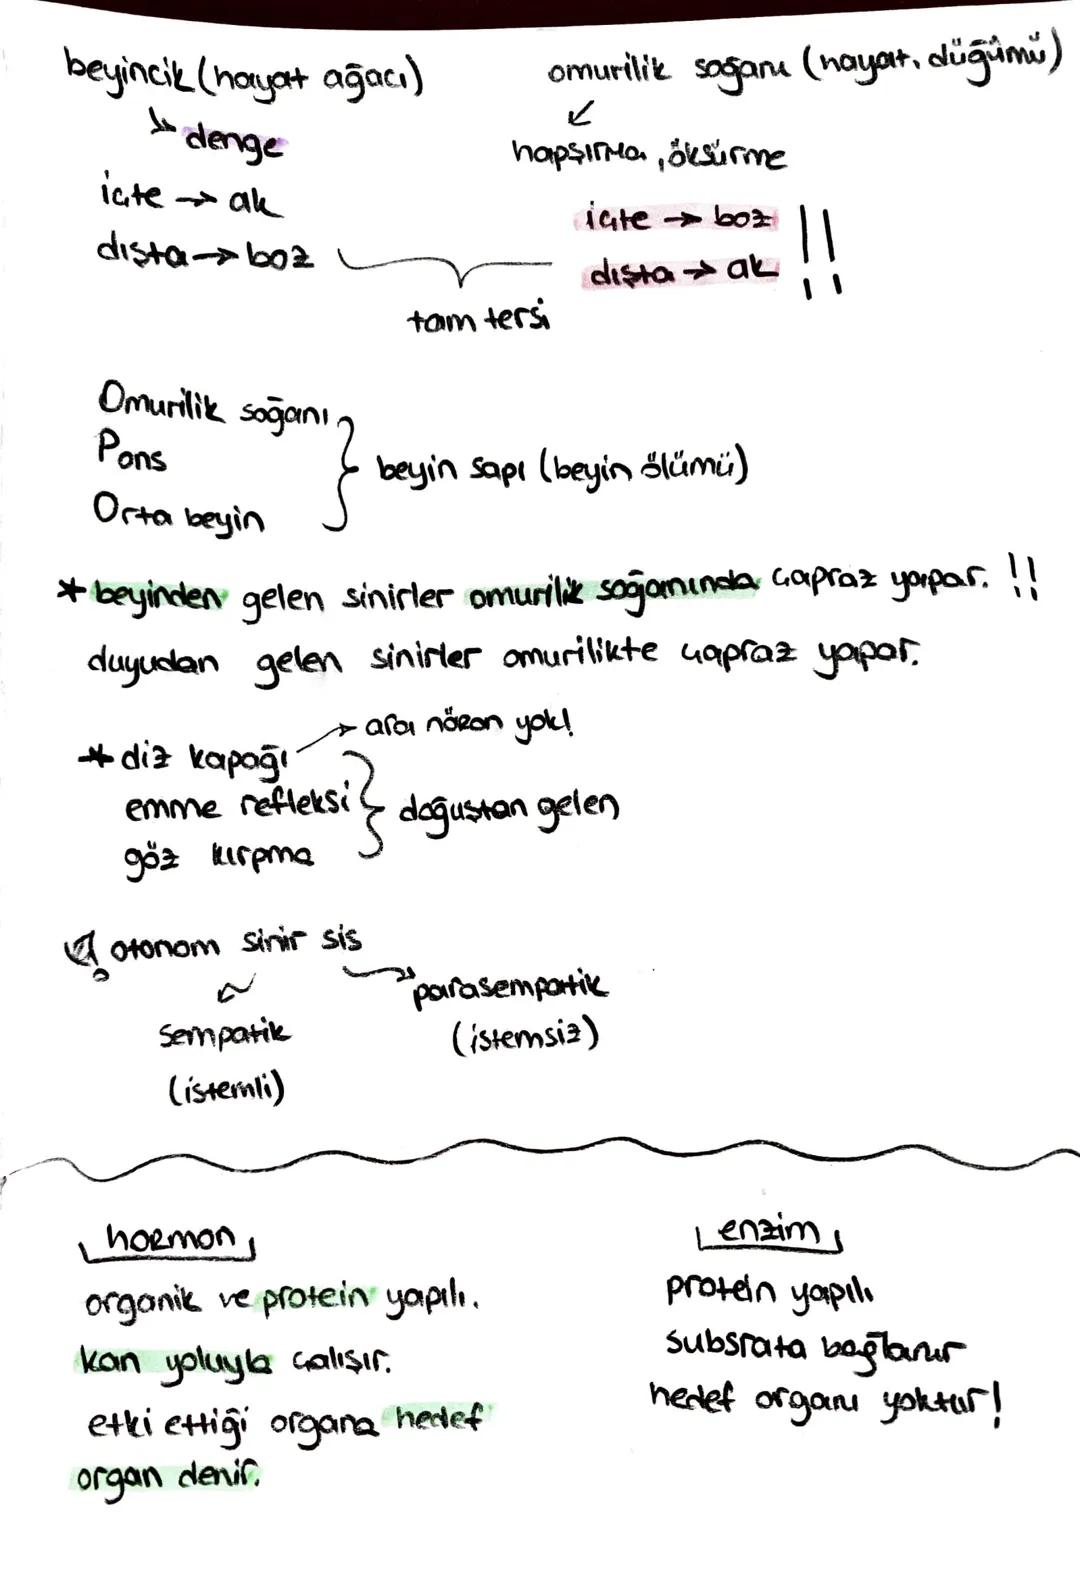 beyincik (hayat ağacı)
denge
içte → ak
dışta → boz
omurilik soğanı (hayat düğümü)
hapşırma, öksürme
içte → boz !!
dışta → ak
tam tersi
Omurilik soğanı
Pons
Orta beyin
beyin sapı (beyin ölümü)
* beyinden gelen sinirler omurilik soğanında çapraz yapar. !!
duyudan gelen sinirler omurilikte çapraz yapar.
* diz kapağı → ara nöron yok!
emme refleksi
göz kırpma
doğuştan gelen
otonom sinir sis
sempatik
(istemli)
parasempatik
(istemsiz)
hormon
organik ve protein yapılı.
kan yoluyla çalışır.
etki ettiği organa hedef
organ denir.
enzim
protein yapılı
subsrata bağlanır
hedef organı yoktur!